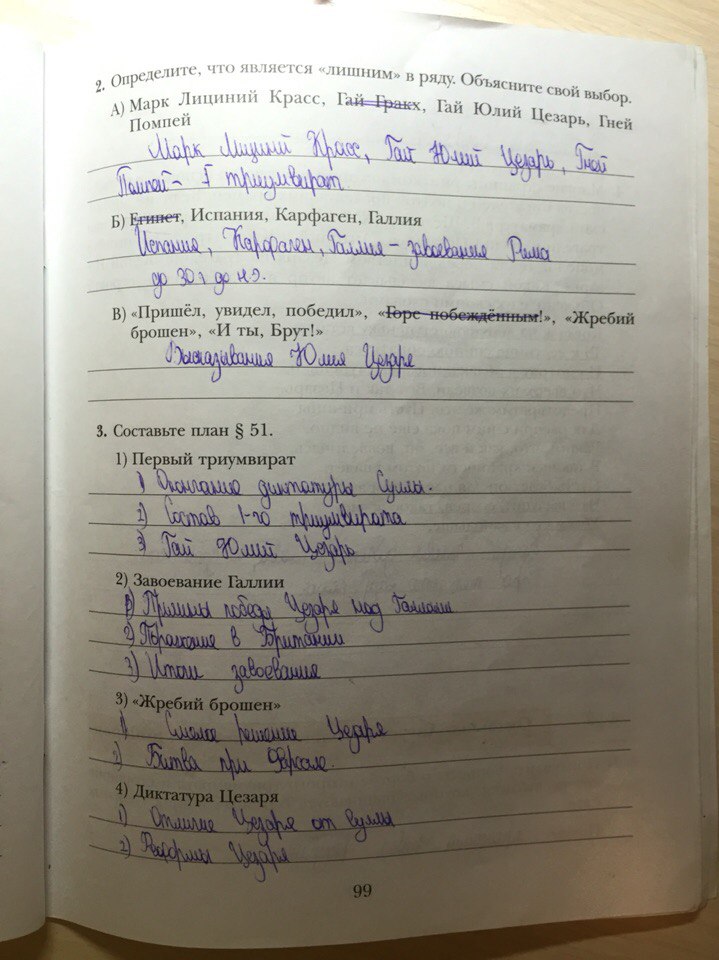 2. Определите, что является «лишним» в ряду. Объясните свой выбор.
А) Марк Лициний Красс, Гай Гракх, Гай Юлий Цезарь, Гней
Помпей
Марк Лициний Красс, Гай Юлий Цезарь, Гней
Помпей – I триумвират
Б) Египет, Испания, Карфаген, Галлия
Испания, Карфаген, Галлия – завоевания Рима
до 30 г до н.э.
В) «Пришёл, увидел, победил», «Горе побеждённым!», «Жребий
брошен», «И ты, Брут!»
Высказывания Юлия Цезаря
3. Составьте план § 51.
1) Первый триумвират
1) Окончание диктатуры Суллы.
2) Состав 1-го триумвирата
3) Гай Юлий Цезарь
2) Завоевание Галлии
1) Причины побед Цезаря над Галлами
2) Поражение в Британии
3) Итоги завоевания
3) «Жребий брошен»
1) Смелое решение Цезаря
2) Битва при Фарсале.
4) Диктатура Цезаря
1) Отличие Цезаря от Суллы
2) Реформы Цезаря
99